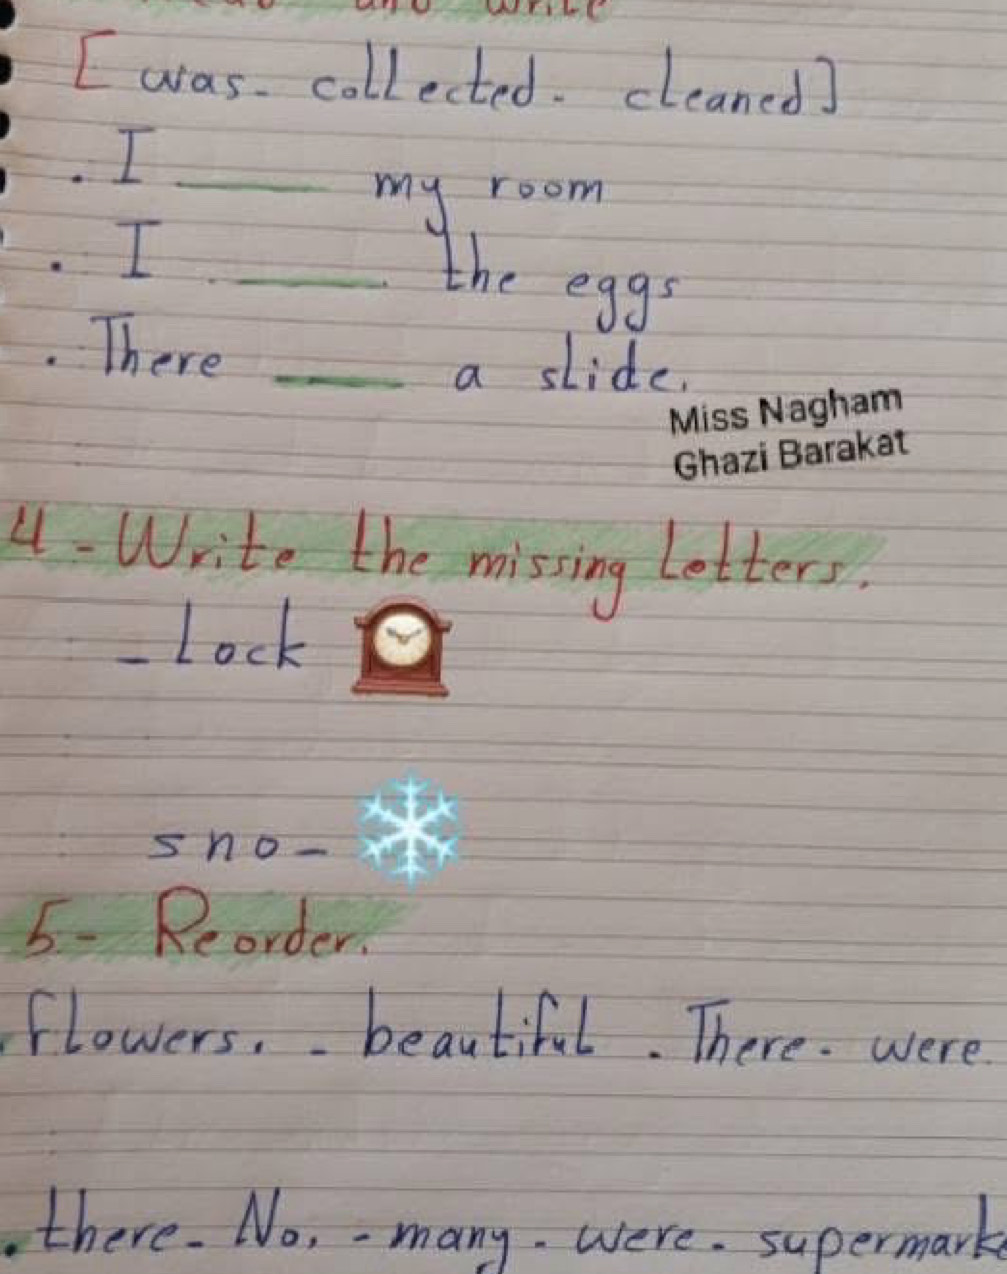 and write
[ was - collected - cleaned ]
. I ____ my room
. I ____ the eggs
. There ____ a slide.
Miss Nagham
Ghazi Barakat
4 - Write the missing letters.
_ lock
sno _
5 - Reorder.
. flowers. - beautiful - There - were
. there - No, - many - were - supermark